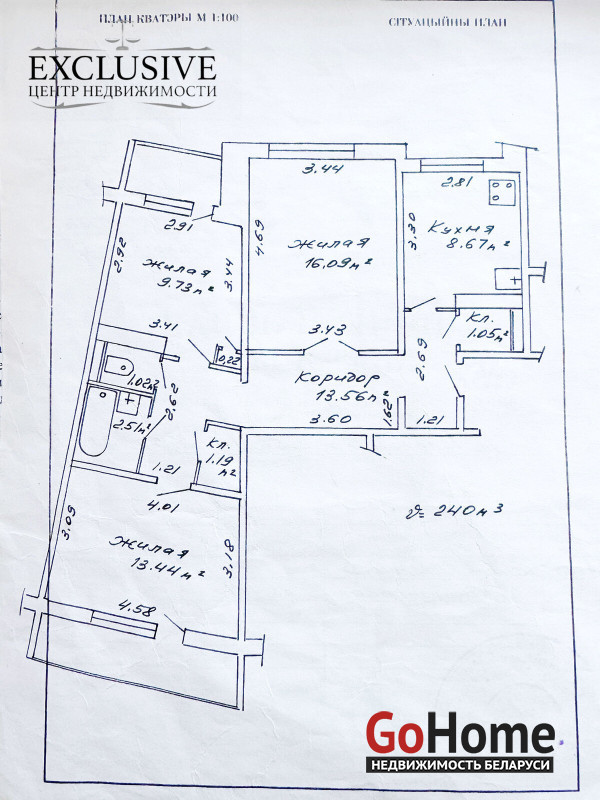 ПЛАН КВАТЭРЫ М 1:100
СІТУАЦЫЙНЫ ПЛАН
EXCLUSIVE
ЦЕНТР НЕДВИЖИМОСТИ
3.44
2.81
2.91
4.69
3.30
Кухня
8.67 м²
2.92
Жилая
9.73 м²
3.44
Жилая
16.09 м²
3.41
3.43
Кл.
1.05 м²
0,22
2.69
1.02
2.62
Коридор
13.56 м²
2.51 м²
3.60
1.62
1.21
Кл.
1.19
м²
1.21
4.01
3.09
Жилая
13.44 м²
3.18
v= 240 м³
4.58
GoHome
НЕДВИЖИМОСТЬ БЕЛАРУСИ